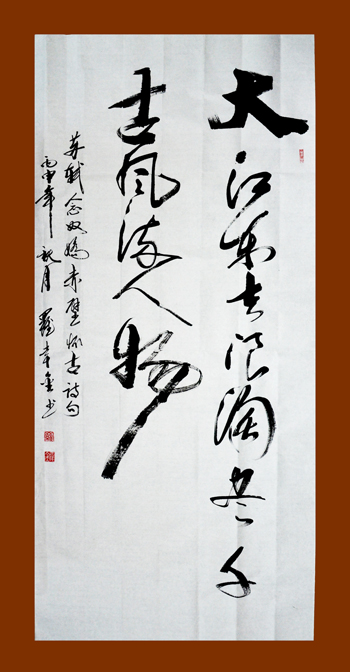 大江东去浪淘尽千
古风流人物
苏轼念奴娇赤壁怀古诗句
丙申年秋月羅书